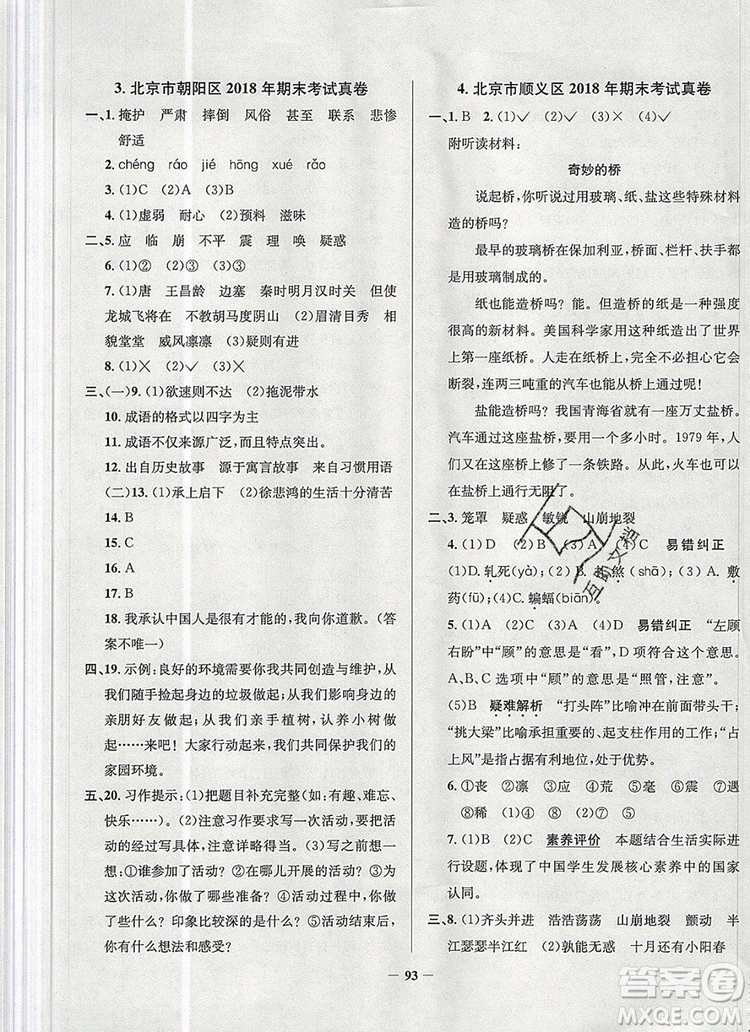 3. 北京市朝阳区 2018 年期末考试真卷
一、1. 掩护　严肃　摔倒　风俗　甚至　联系　悲惨
舒适
2. chéng　ráo　jié　hōng　xué　rǎo
3. (1)C　(2)A　(3)B
4. (1)虚弱　耐心　(2)预料　滋味
二、5. 应　临　崩　不平　震　理　唤　疑惑
6. (1)①　②　(2)③　(3)③
7. (1)唐　王昌龄　边塞　秦时明月汉时关　但使
龙城飞将在　不教胡马度阴山　(2)眉清目秀　相
貌堂堂　威风凛凛　(3)疑则有进
8. (1)×　(2)✓　(3)✓　(4)×
三、(一)9. (1)欲速则不达　(2)拖泥带水
10. 成语的格式以四字为主
11. 成语不仅来源广泛，而且特点突出。
12. 出自历史故事　源于寓言故事　来自习惯用语
(二)13. (1)承上启下　(2)徐悲鸿的生活十分清苦
14. B
15. C
16. A
17. B
18. 我承认中国人是很有才能的，我向你道歉。(答
案不唯一)
四、19. 示例：良好的环境需要你我共同创造与维护，从
我们随手捡起身边的垃圾做起；从我们影响身边的
亲朋好友做起；从我们亲手植树，认养小树做
起……来吧！大家行动起来，我们共同保护我们的
家园环境。
五、20. 习作提示：(1)把题目补充完整(如：有趣、难忘、
快乐……)。(2)注意习作要求，写一次参加过的活
动，要写具体，注意详略得当。(3)写之前想一想：
①谁参加了活动？②在哪儿开展的活动？③为了
这次活动，都做了哪些准备？④活动过程中，你都
做了些什么？印象比较深的是什么？⑤活动结束后，
你有什么想法和感受？
4. 北京市顺义区 2018 年期末考试真卷
一、1. B　2. (1)✓　(2)×　(3)×　(4)✓
附听读材料：
奇妙的桥
说起桥，你听说过用玻璃、纸、盐这些特殊材料
造的桥吗？
最早的玻璃桥在保加利亚，桥面、栏杆、扶手都
是用玻璃制成的。
纸也能造桥？能。但造桥的纸是一种强度
很高的新材料。美国科学家用这种纸造出了世界
上第一座纸桥。人走在纸桥上，完全不必担心桥会
断裂，连两三吨重的汽车也能从桥上通过哩！
盐能造桥吗？我国青海省就有一座万丈盐桥。
汽车通过这座盐桥，要用一个多小时。1979 年，人
们又在这座桥上修了一条铁路。从此，火车也可
以在盐桥上运行无阻了。
二、3. 笼罩　疑惑　敏锐　山崩地裂
4. (1)D　(2)A　(3)D　(4)C　易错纠正
(1)D. 轧死(yà)；(2)A. 煞(shā)；(3)A. 敷
药(fū)；(4)C. 蝙蝠(biān)。
5. (1)D　(2)A　(3)C　(4)D　易错纠正　“左顾
右盼”中“顾”的意思是“看”，可以判断答案为D。
A、B、C 选项“顾”的意思是“照管，注意”。
(5)B　疑难解析　“打头阵”比喻冲在前面带头干；
“挑大梁”比喻承担重要的、起支柱作用的工作；“占
上风”意思是占据有利地位，处于优势。
6. ①丧　②凛　③帐　④折　⑤毫　⑥尘　⑦遇
⑧稀　(1)①　(2)④
7. (1)B　(2)C　素养评价　本题结合生活实际进
行设题，体现了中国学生发展核心素养中的国家
认同。
三、8. (1)齐头并进　浩浩荡荡　山崩地裂　颤动　半
江瑟瑟半江红　(2)孰能无惑　十月还有小阳春
互助文档
答案圈
MXQE.COM
93